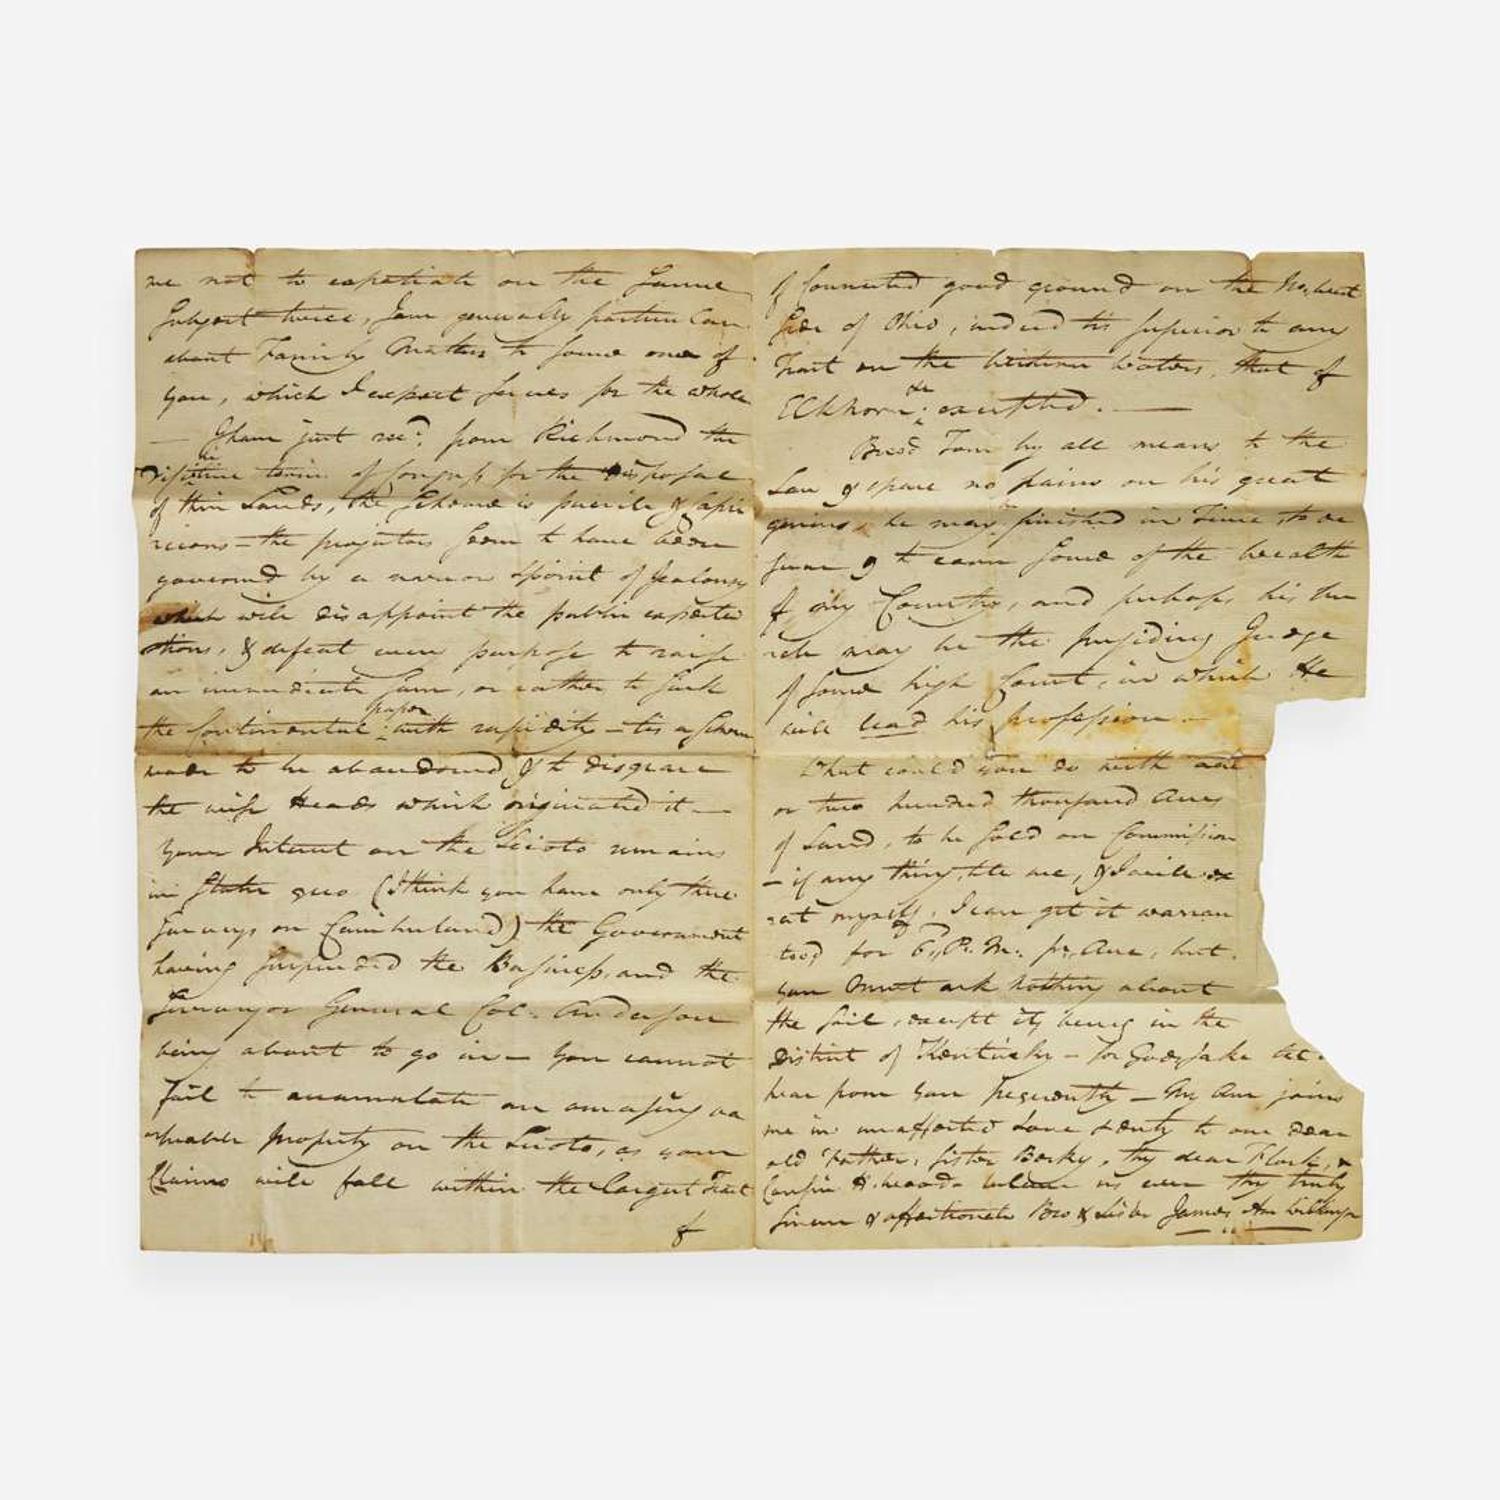 me not to expatiate on the same
Subject twice, I am generally particular
about Family Matters to some one of
you, which I expect serves for the whole
— I have just recd. from Richmond the
of Congress for the disposal
of their Lands, the Scheme is puerile & capri
cious — the projectors seem to have been
governed by a narrow spirit of Jealousy
which will disappoint the public expecta
tions, & defeat every purpose to raise
an immediate Sum, or rather to sink
the Continental paper with rapidity — tis a Scheme
made to be abandoned & to disgrace
the wise Heads which originated it —
Your Interest on the Scioto remains
in statu quo (I think you have only three
Surveys on Cumberland) the Government
having suspended the Business, and the
Surveyor General Col. Anderson
being about to go in — You cannot
fail to accumulate an amazing va
luable property on the Scioto, as your
Claims will fall within the largest Tract
of
of Connected good ground on the No. West
side of Ohio, indeed tis superior to any
Tract on the Western Waters, that of
Elkhorn &c excepted. —
Breed Tom by all means to the
Law & spare no pains on his great
genius, he may finished in Time to se
cure to earn some of the wealth
of my Country, and perhaps his Un
cle may be the presiding Judge
of some high Court, in which He
will lead his profession —
What could you do with one
or two hundred thousand Acres
of Land, to be sold on Commission
— if any thing, tile me, & I will ex
ert myself, I can get it warran
ted for 6d P. M. pr. Acre, but
you must ask nothing about
the soil, except its being in the
District of Kentucky — for God's sake let
hear from you frequently — My Ann joins
me in unaffected Love & Duty to our dear
old Father, Sister Becky, thy dear Flock, &
Cousin H. wood. believe us ever thy truly
sincere & affectionate Bro & Sister James Ann Wilkinson